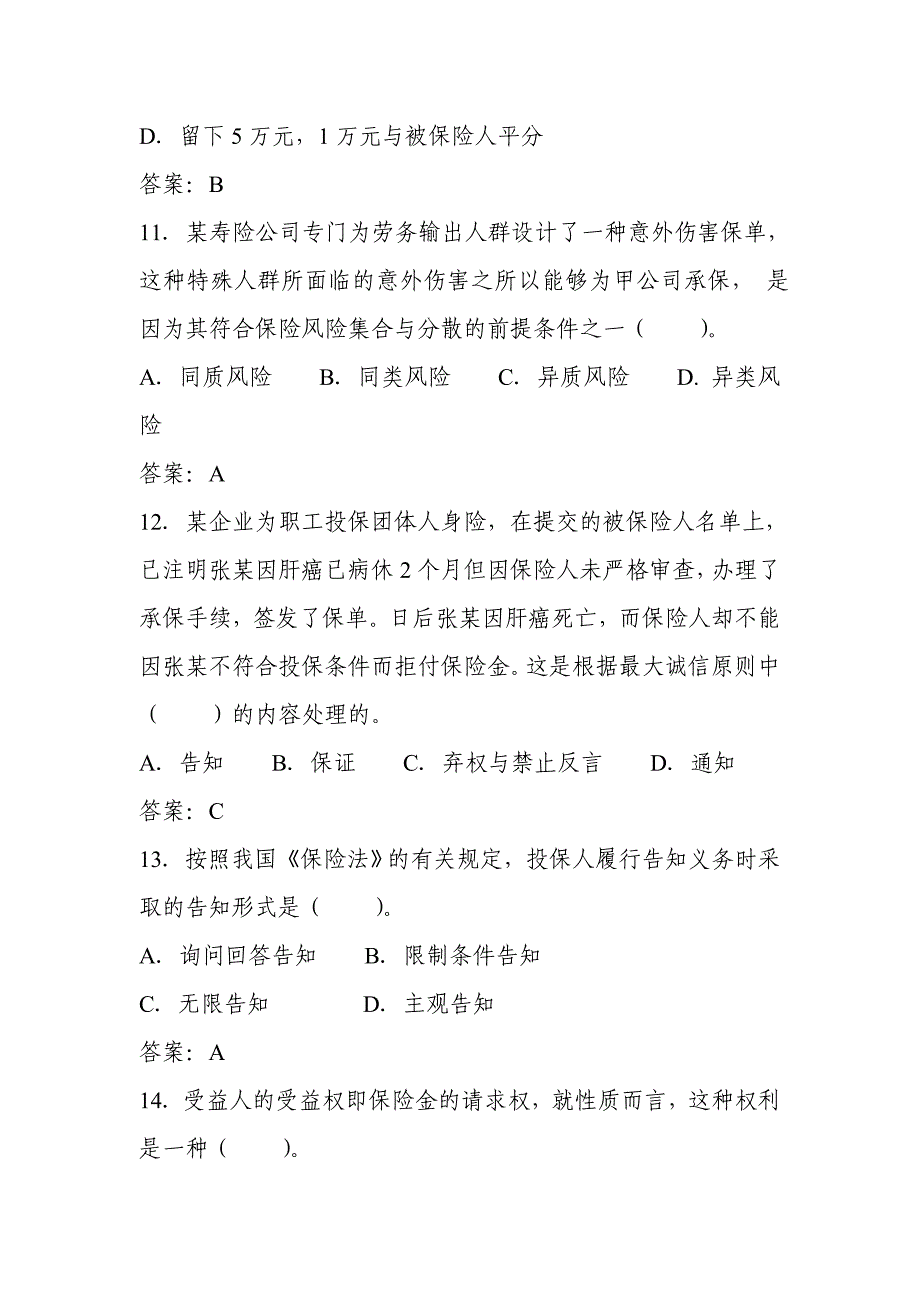 D. 留下 5 万元，1 万元与被保险人平分
答案：B
11. 某寿险公司专门为劳务输出人群设计了一种意外伤害保单，
这种特殊人群所面临的意外伤害之所以能够为甲公司承保， 是
因为其符合保险风险集合与分散的前提条件之一（　　）。
A. 同质风险　　B. 同类风险　　C. 异质风险　　D. 异类风
险
答案：A
12. 某企业为职工投保团体人身险，在提交的被保险人名单上，
已注明张某因肝癌已病休 2 个月但因保险人未严格审查，办理了
承保手续，签发了保单。日后张某因肝癌死亡，而保险人却不能
因张某不符合投保条件而拒付保险金。这是根据最大诚信原则中
（　　）的内容处理的。
A. 告知　　B. 保证　　C. 弃权与禁止反言　　D. 通知
答案：C
13. 按照我国《保险法》的有关规定，投保人履行告知义务时采
取的告知形式是（　　）。
A. 询问回答告知　　B. 限制条件告知
C. 无限告知　　　　D. 主观告知
答案：A
14. 受益人的受益权即保险金的请求权，就性质而言，这种权利
是一种（　　）。